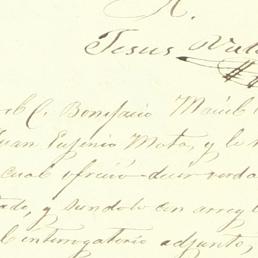 A.
Jesus
el C. Bonifacio Maciel
Juan Eugenio Mota, y le
cual ofreció decir verda
tado, y siendolo con arreg
l interrogatorio adjunto,